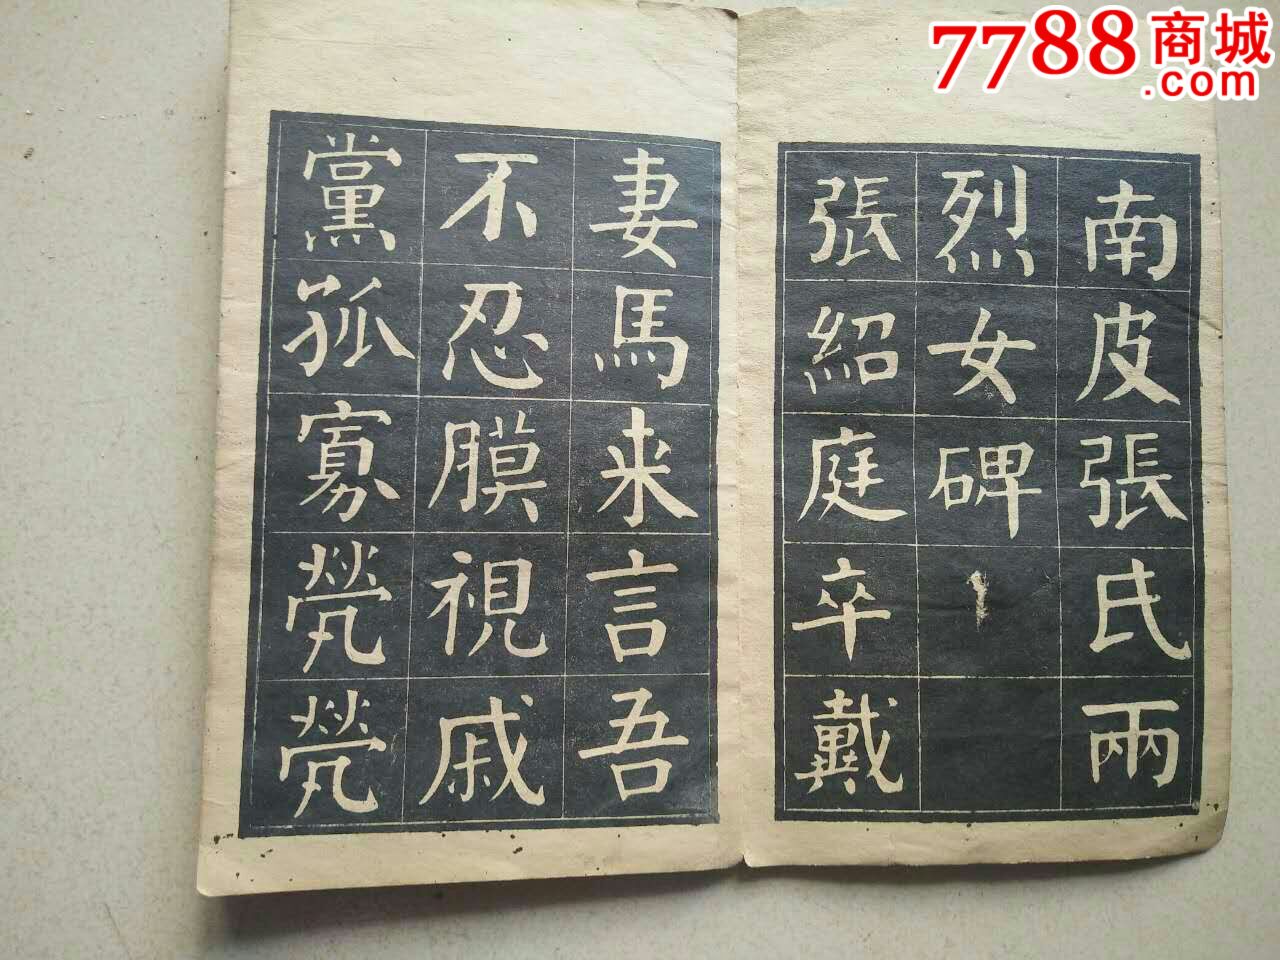 7788商城
.com
南皮張氏兩
烈女碑
張紹庭卒戴
妻馬来言吾
不忍膜視戚
黨孤寡煢煢